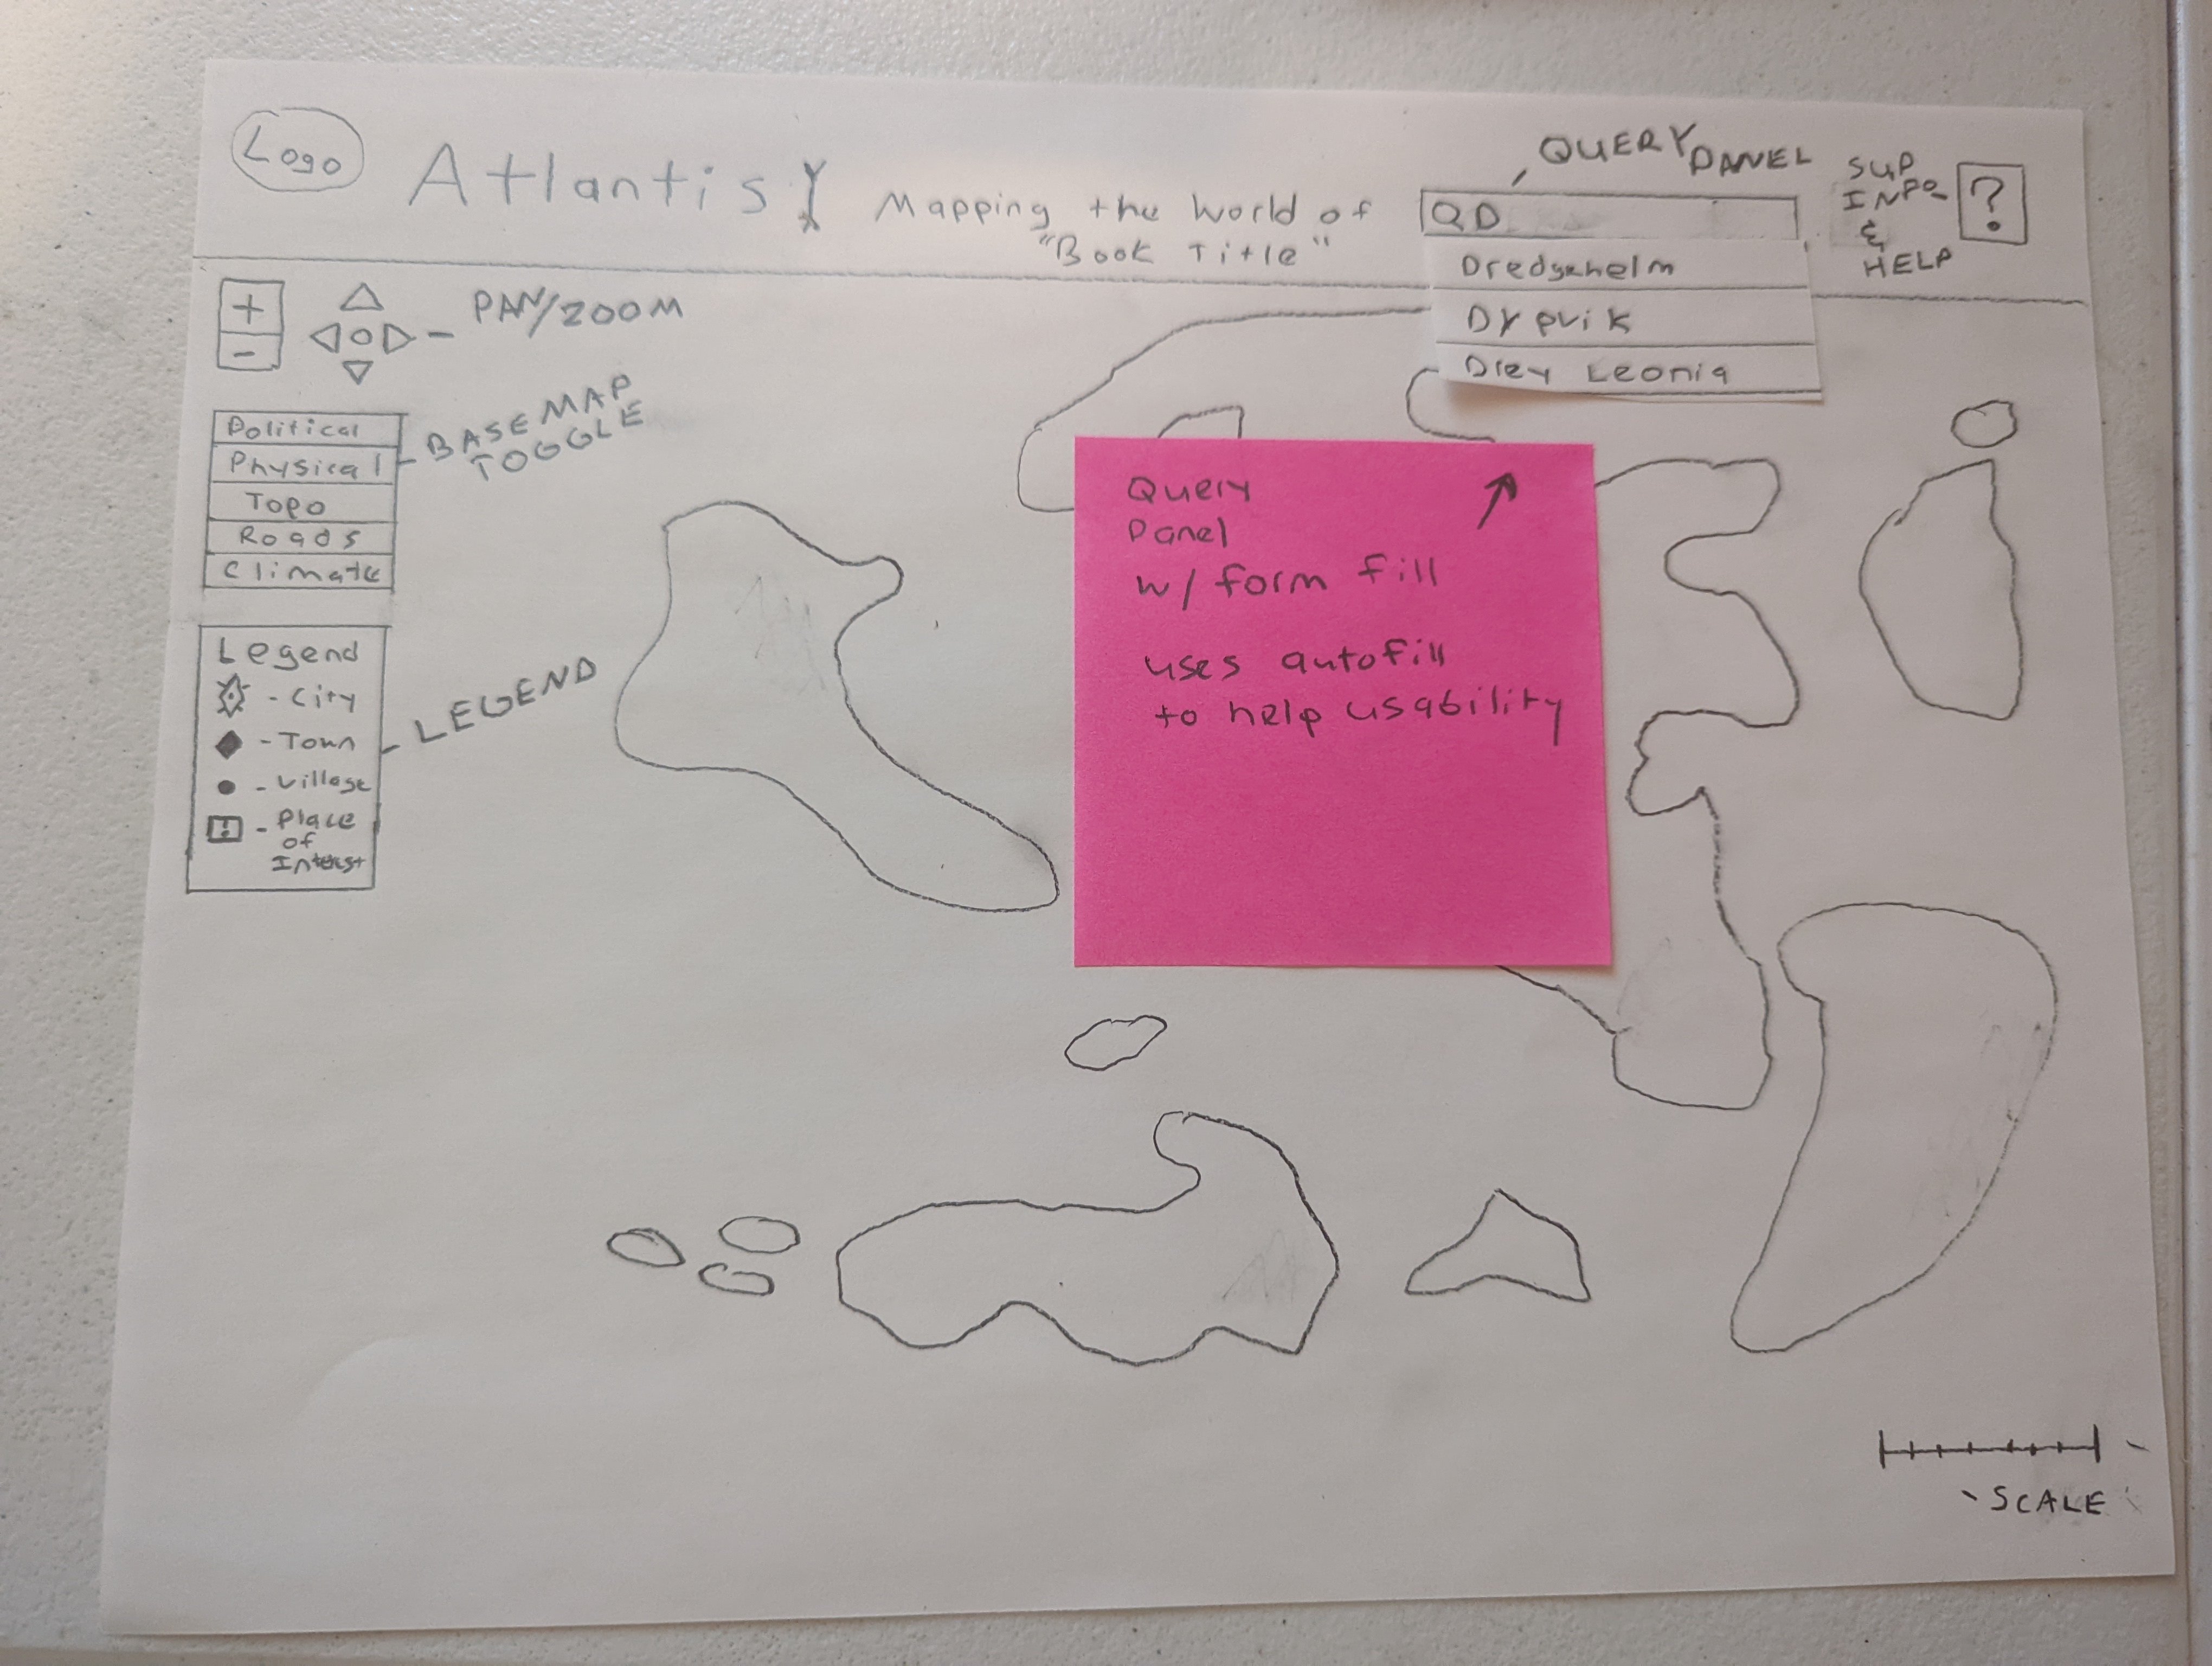 Logo
Atlantis!
Mapping the World of
"Book Title"
QUERY PANEL
QD
Dredgehelm
Drpvik
Drey Leonia
SUP
INFO
&
HELP
?
+
-
- PAN/ZOOM
Political
Physical
Topo
Roads
Climate
- BASEMAP
TOGGLE
Legend
- City
- Town
- Village
- Place
of
Interest
- LEGEND
Query
Panel
w/ form fill
uses autofill
to help usability
- SCALE